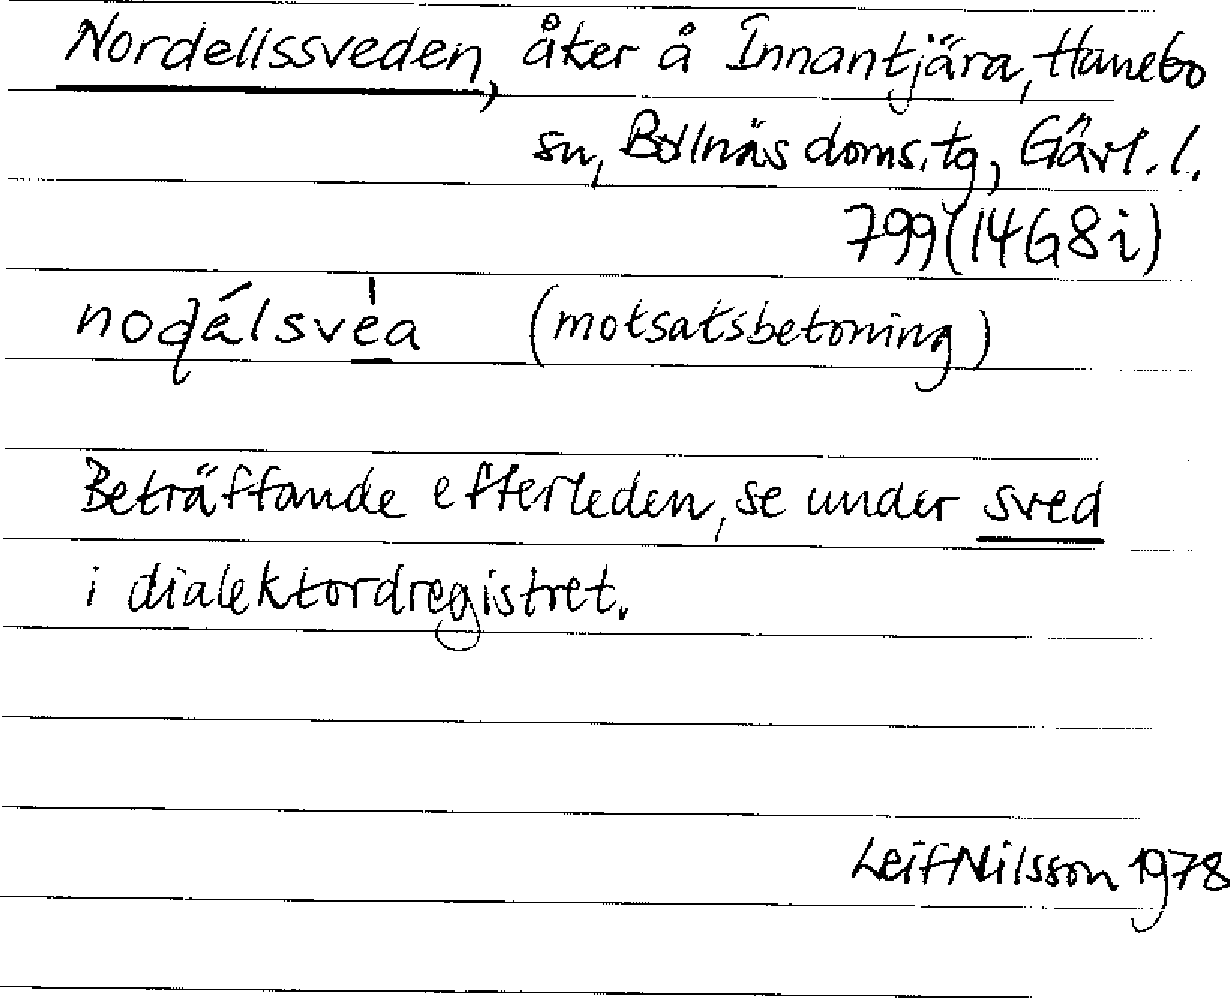 Nordellssveden, åker å Innantjära, Hanebo
sn, Bollnäs doms.tg, Gävl.l.
799 (14G8i)
(motsatsbetoning)
Beträffande efterleden, se under sved
i dialektordregistret.
Leif Nilsson 1978